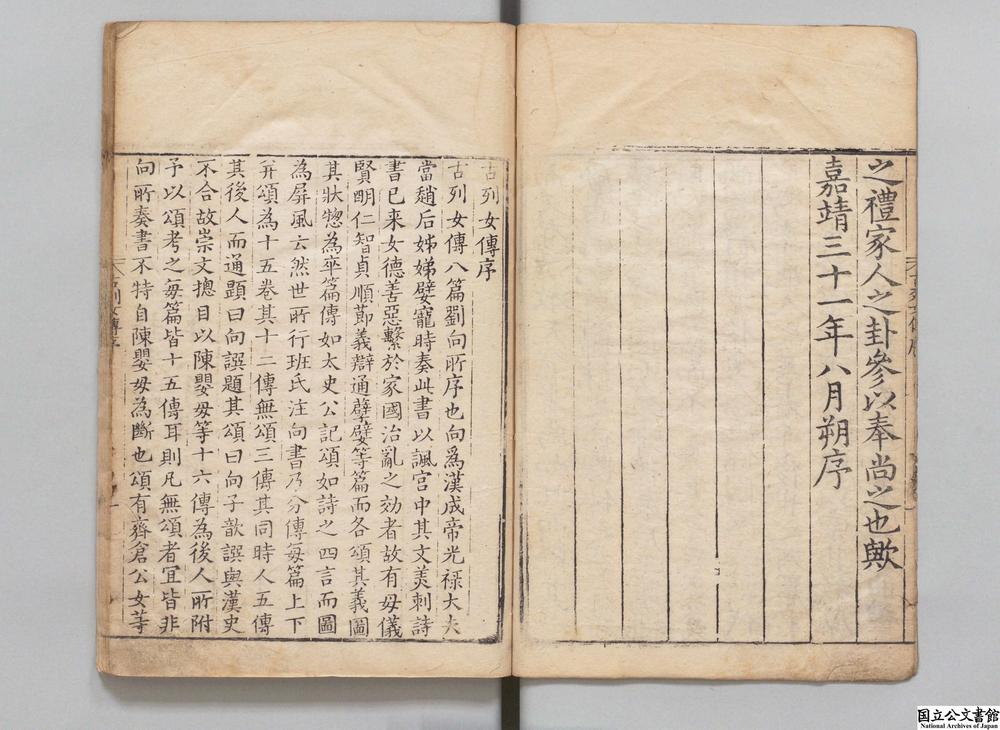 之禮家人之卦參以奉尚之也歟
嘉靖三十一年八月朔序
古列女傳序
古列女傳八篇劉向所序也向爲漢成帝光禄大夫
當趙后姊娣嬖寵時奏此書以諷宫中其文美刺詩
書已来女德善惡繫於家國治亂之効者故有母儀
賢明仁智貞順節義辯通孽嬖等篇而各頌其義圖
其狀惣為卒篇傳如太史公記頌如詩之四言而圖
為屏風云然世所行班氏注向書乃分傳每篇上下
并頌為十五卷其十二傳無頌三傳其同時人五傳
其後人而通題曰向譔題其頌曰向子歆譔與漢史
不合故崇文摠目以陳嬰母等十六傳為後人所附
予以頌考之每篇皆十五傳耳則凡無頌者宜皆非
向所奏書不特自陳嬰母為斷也頌有齊倉公女等
古列女傳序
国立公文書館
National Archives of Japan